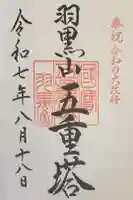 奉祝 令和の大改修
羽黒山五重塔
令和七年八月十八日